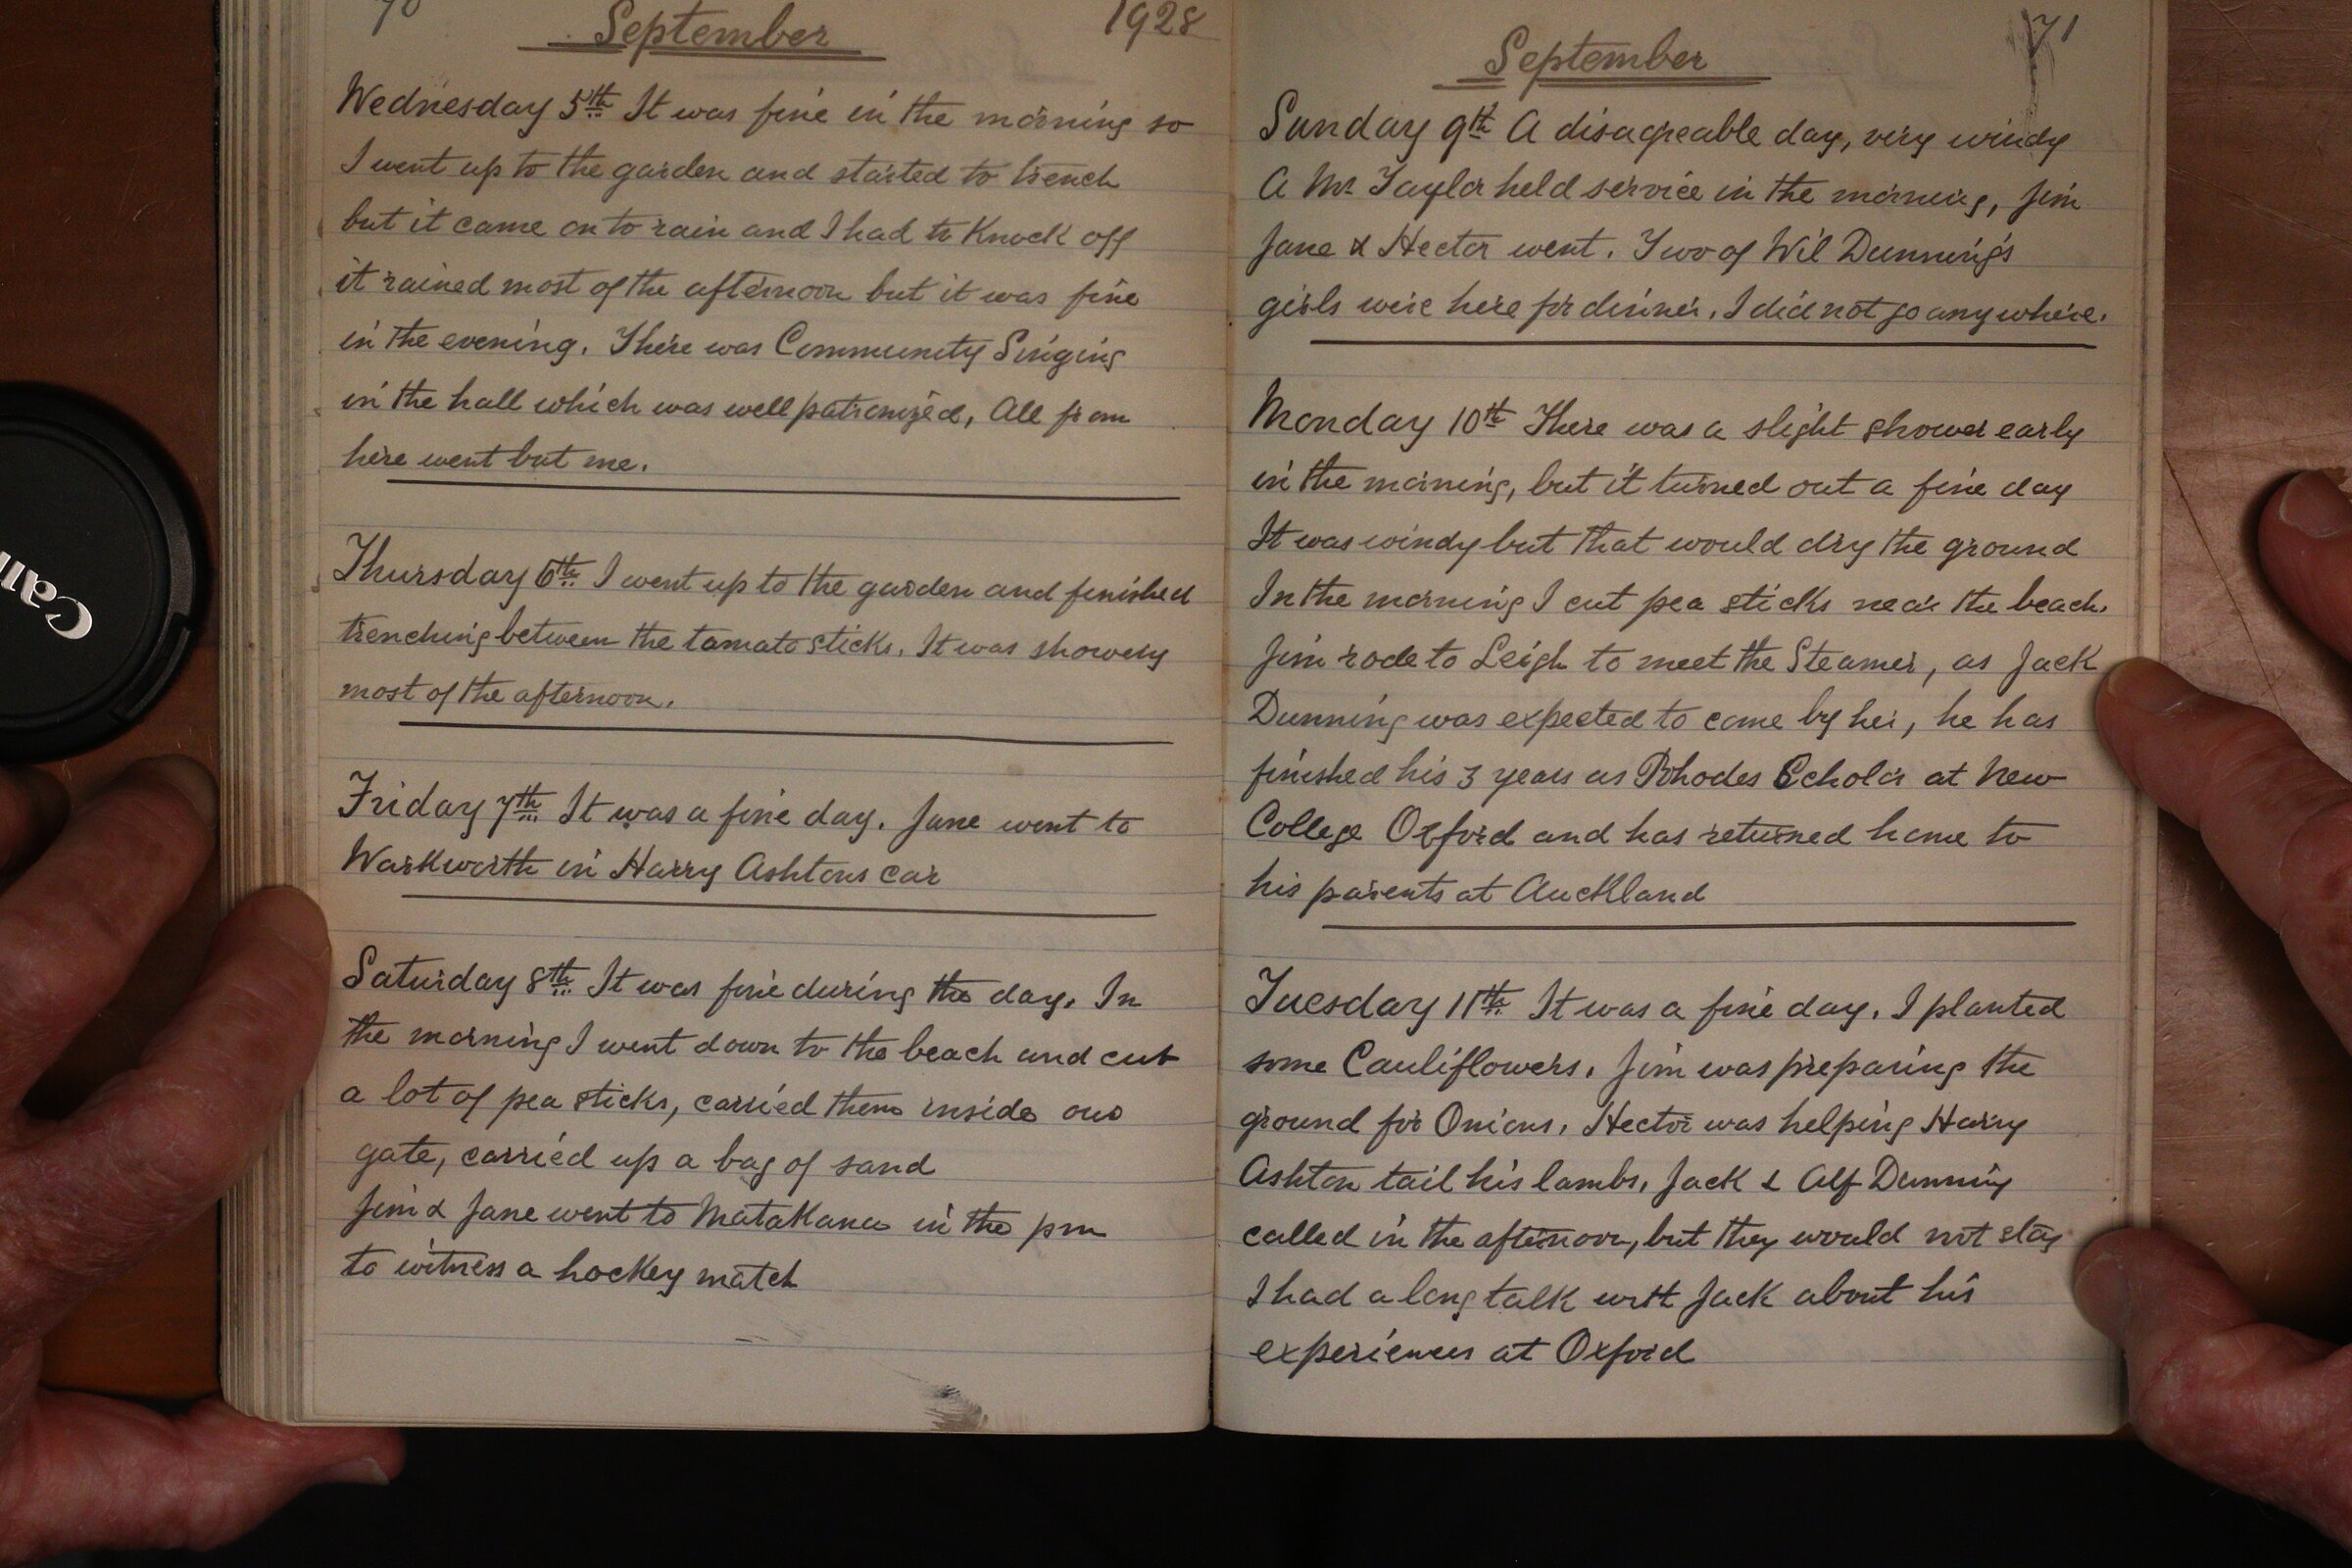 70
September
1928
Wednesday 5th It was fine in the morning so
I went up to the garden and started to trench
but it came on to rain and I had to Knock off
it rained most of the afternoon but it was fine
in the evening. There was Community Singing
in the hall which was well patronized, All from
here went but me.
Thursday 6th I went up to the garden and finished
trenching between the tamato sticks. It was showery
most of the afternoon.
Friday 7th It was a fine day. Jane went to
Warkworth in Harry Ashtons car
Saturday 8th It was fine during the day. In
the morning I went down to the beach and cut
a lot of pea sticks, carried them inside our
gate, carried up a bag of sand
Jim & Jane went to Matakana in the pm
to witness a hockey match
71
September
Sunday 9th A disagreable day, very windy
A Mr Taylor held service in the morning, Jim
Jane & Hector went. Two of Wil Dunning's
girls were here for dinner. I did not go anywhere.
Monday 10th There was a slight shower early
in the morning, but it turned out a fine day
It was windy but that would dry the ground
In the morning I cut pea sticks near the beach.
Jim rode to Leigh to meet the Steamer, as Jack
Dunning was expected to come by her, he has
finished his 3 years as Rhodes Scholar at New
College Oxford and has returned home to
his parents at Auckland
Tuesday 11th It was a fine day. I planted
some Cauliflowers. Jim was preparing the
ground for Onions. Hector was helping Harry
Ashton tail his lambs. Jack & Alf Dunning
called in the afternoon, but they would not stay
I had a long talk with Jack about his
experiences at Oxford
Can